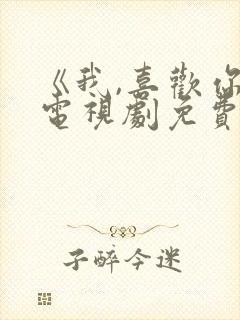 《我,喜歡你
電視劇免費
子醉今迷